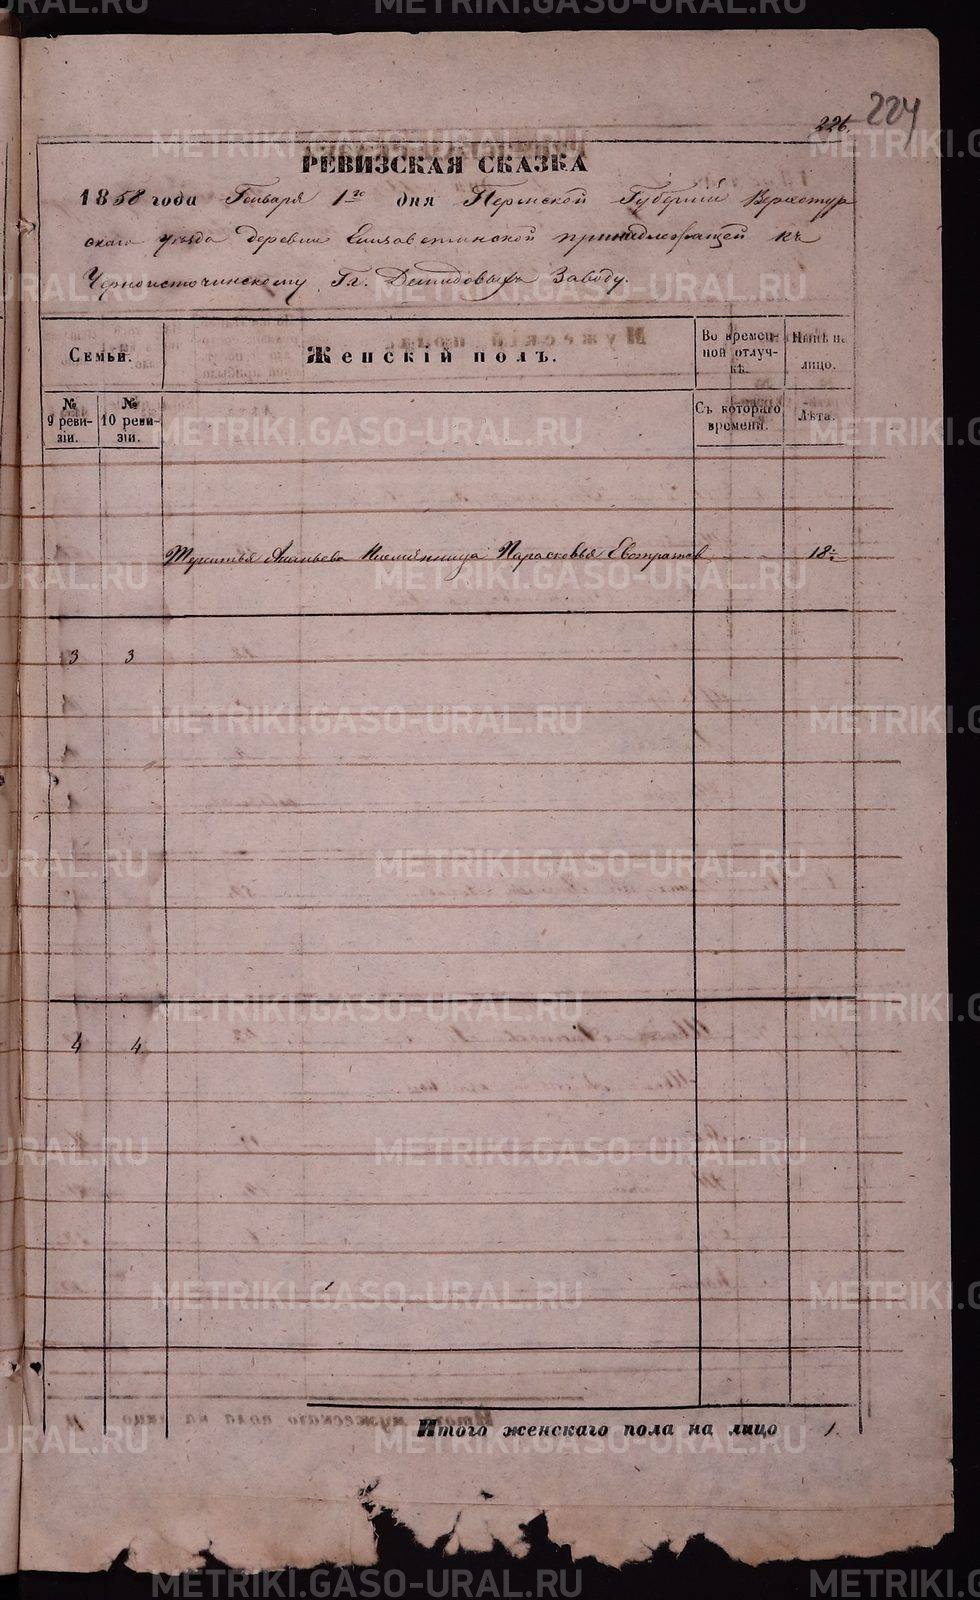 226. 224
РЕВИЗСКАЯ СКАЗКА
1858 года Генваря 1го дня Пермской Губернiи Верхотур
скаго уѣзда деревни Елизаветинской принадлежащей къ
Черноисточинскому Гг. Демидовыхъ Заводу.
Семьи.
Женскiй полъ.
Во времен-
ной отлуч-
кѣ.
Нынѣ на
лицо.
№
9 реви-
зiи.
№
10 реви-
зiи.
Съ котораго
времени.
Лѣта.
Ананьева Племянница Парасковья Евстратов 18
3 3
4 4
Итого женскаго пола на лицо 1.
METRIKI.GASO-URAL.RU